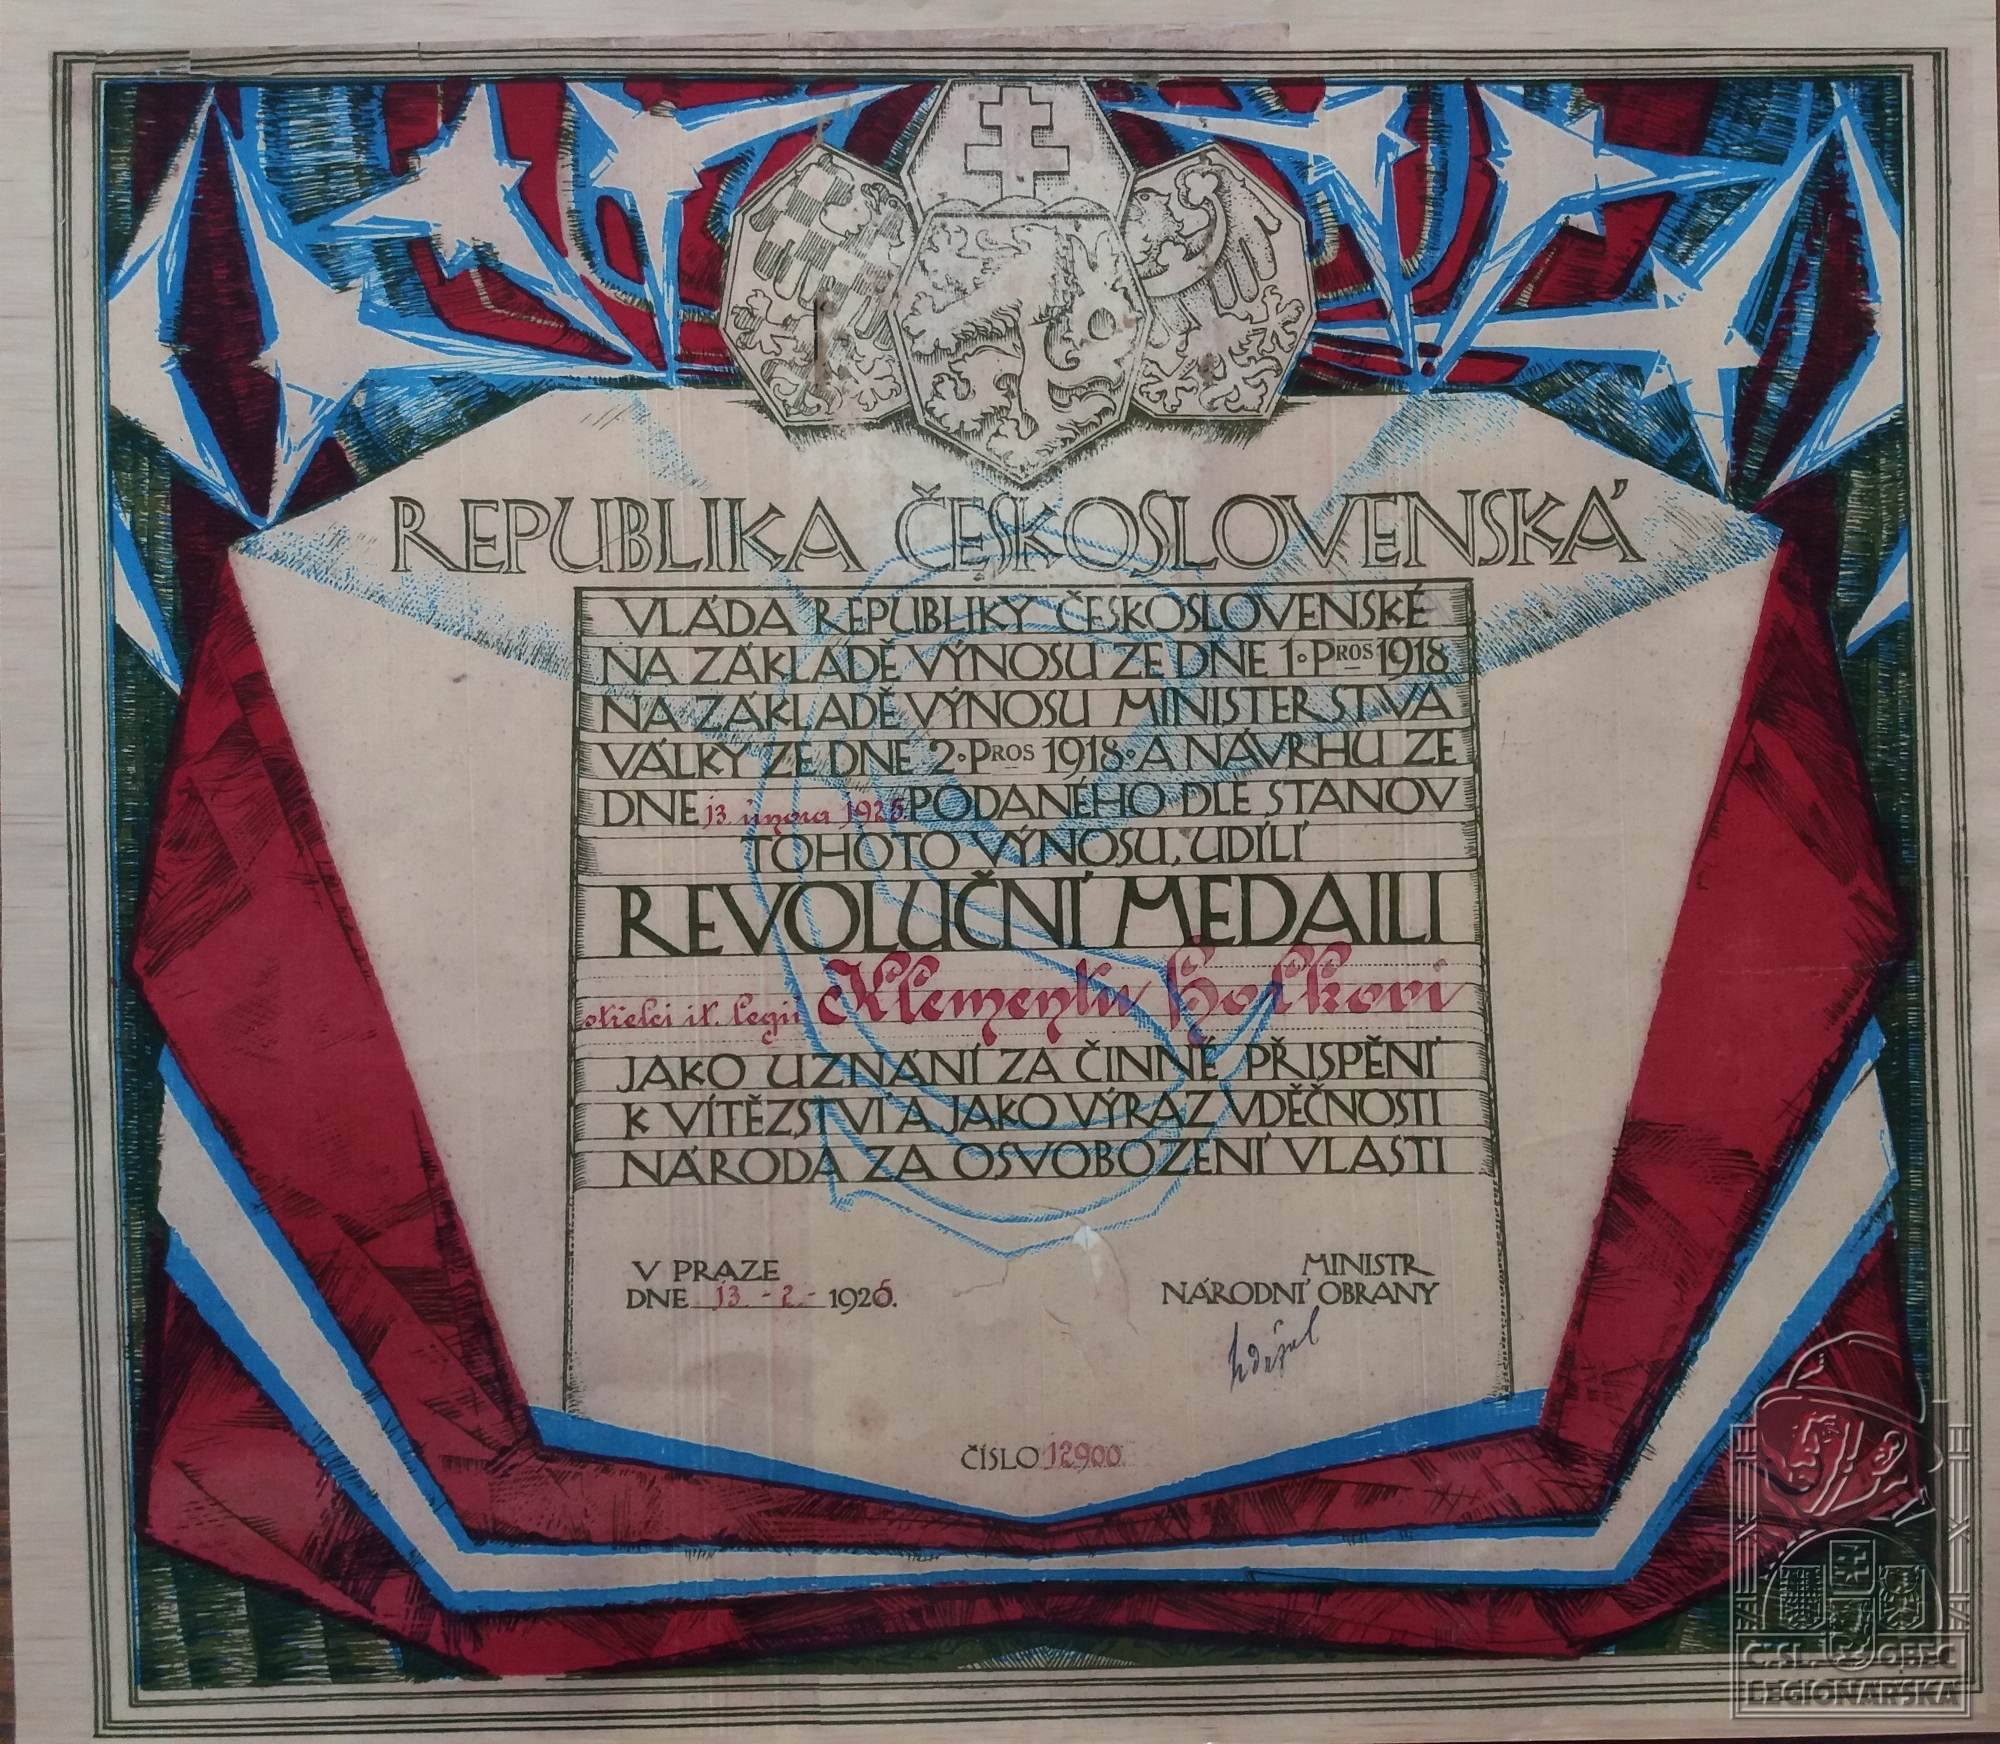 REPUBLIKA ČESKOSLOVENSKÁ
VLÁDA REPUBLIKY ČESKOSLOVENSKÉ
NA ZÁKLADĚ VÝNOSU ZE DNE 1. PROS 1918
NA ZÁKLADĚ VÝNOSU MINISTERSTVA
VÁLKY ZE DNE 2. PROS 1918. A NÁVRHU ZE
DNE 13. února 1926. PODANÉHO DLE STANOV
TOHOTO VÝNOSU, UDÍLÍ
REVOLUČNÍ MEDAILI
střelci it. legií Klementu Holkovi
JAKO UZNÁNÍ ZA ČINNÉ PŘISPĚNÍ
K VÍTĚZSTVÍ A JAKO VÝRAZ VDĚČNOSTI
NÁRODA ZA OSVOBOZENÍ VLASTI
V PRAZE
DNE 13. - 2. - 1926.
MINISTR
NÁRODNÍ OBRANY
ČÍSLO 12900.
Č.SL. OBEC
LEGIONÁŘSKÁ